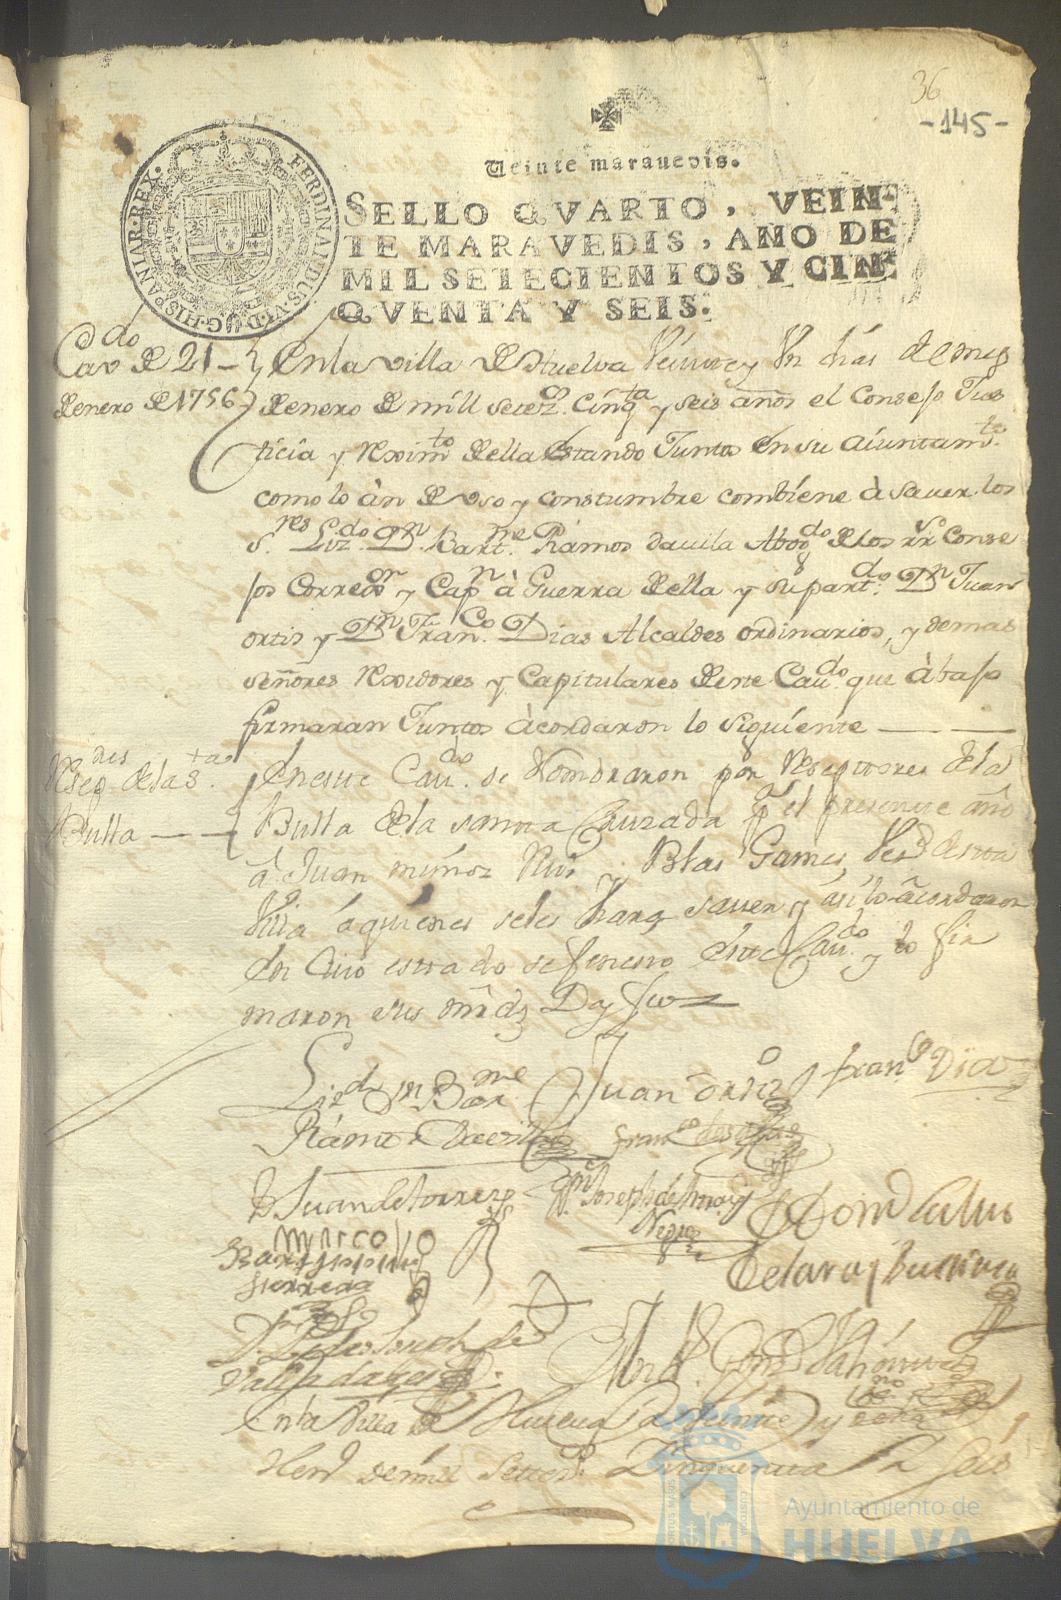 36
-145-
Veinte maravedis.
SELLO QVARTO, VEIN-
TE MARAVEDIS, AÑO DE
MIL SETECIENTOS Y CIN-
QVENTA Y SEIS.
FERDINANDUS·VI·D·G·HISPANIAR·REX·
Cavdo de 21
de enero de 1756
En la villa de Huelva Veinte y Un dias del mes
de enero de mill setez.os cinqta y seis años el Consejo Jus
ticia y Reximto della estando Juntos en su aiuntamto
como lo àn de uso y constumbre combiene à saver los
s.res Lizdo Dn Bartme Rámos Davila Abogdo de los rrs Conse
jos Corregor y Capn à Guerra della y su partdo Dn Juan
ortis y Dn Franco Dias Alcaldes ordinarios, y demas
señores Rexidores y Capitulares deste Cavdo que àbajo
firmaran Juntos àcordaron lo siguiente
Reseptdres de la Sta
Bulla
En este Cavdo se Nombraron por Reseptores de la
Bulla de la santa Cruzada pa el presente año
a Juan muñoz Ruis y Blas Games Vesos desta
Villa à quienes se les hara saver y asi lo àcordaron
en cuio estado se fenesio este Cavdo y lo fir
maron sus mrds Doy fee
Lizdo Dn Barme
Rámos Davila
Juan Ortiz
Franco Dias
Juan de torres
Joseph de
Negro
Marco
Bar
herrera
Domo
En la Villa de Huelva
de mill Setteos Cinquenta y Seis
Ayuntamiento de
HUELVA